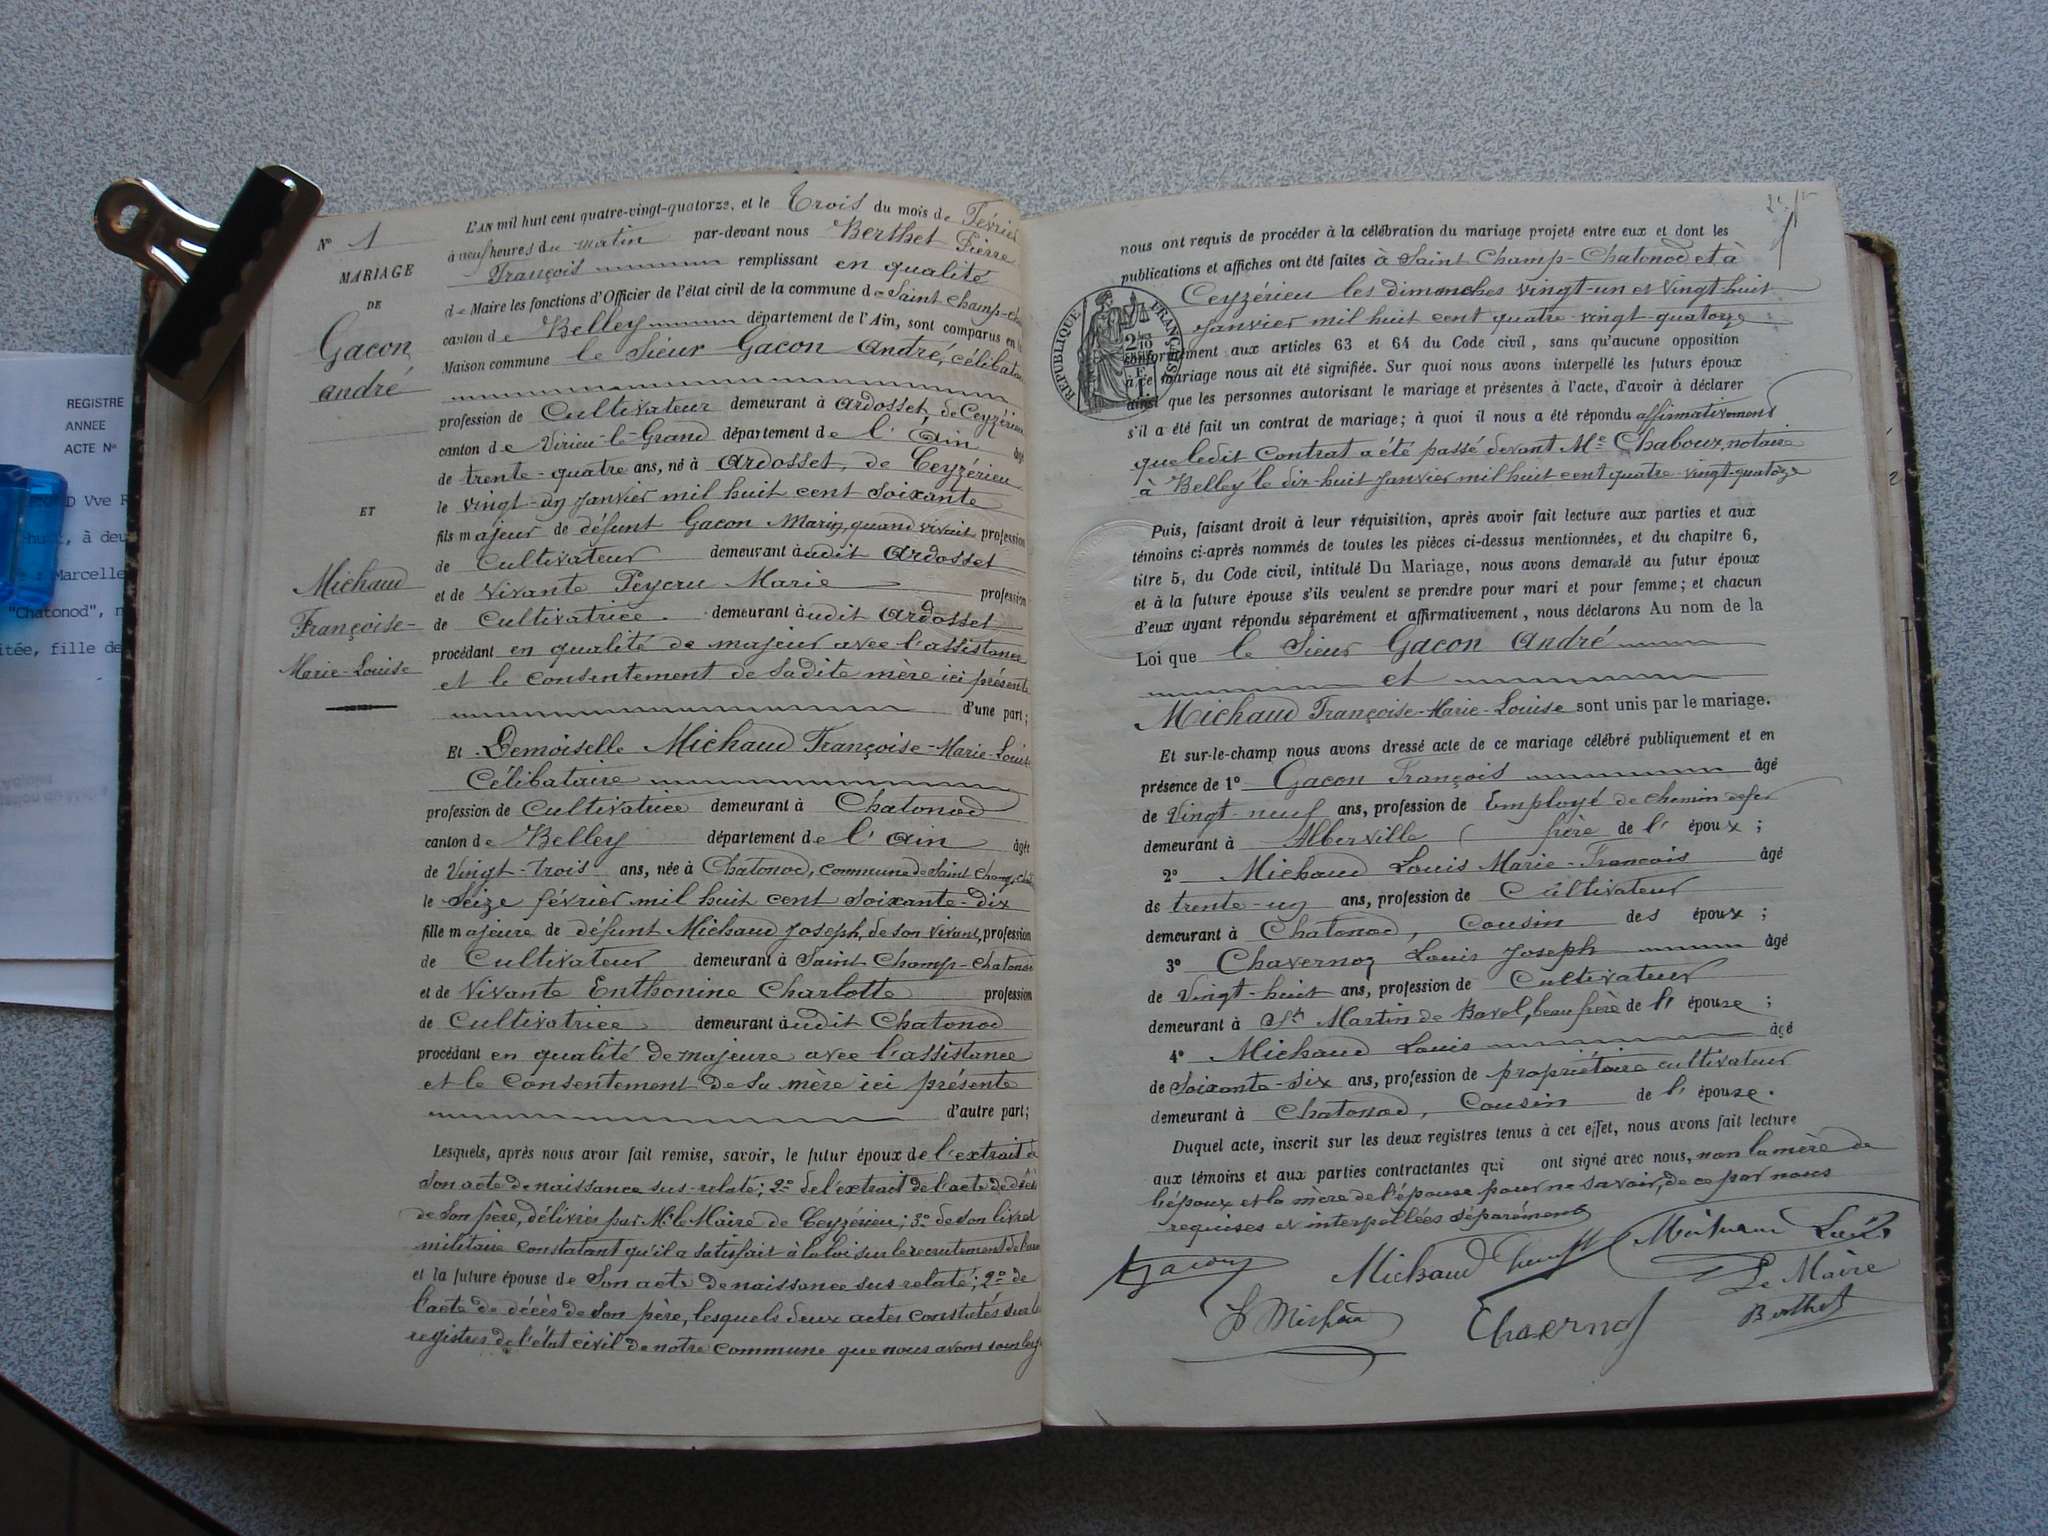 REGISTRE
ANNEE
ACTE N°
D Vve
, à deu
Marcelle
"Chatonod", n
itée, fille de
N° 1
MARIAGE
DE
Gacon
André
ET
Michaud
Françoise-
Marie-Louise
L'AN mil huit cent quatre-vingt-quatorze, et le Trois du mois de Février
à neuf heures du matin par-devant nous Berthet Pierre
François remplissant en qualité
de Maire les fonctions d'Officier de l'état civil de la commune de Saint Champ-Cha
canton de Belley département de l'Ain, sont comparus en la
Maison commune le Sieur Gacon André, célibatai
profession de Cultivateur demeurant à Ardosset, de Ceyzérieu
canton de Virieu-le-Grand département de l'Ain âgé
de trente-quatre ans, né à Ardosset, de Ceyzérieu
le vingt-un Janvier mil huit cent soixante
fils majeur de défunt Gacon Marin, quand vivait profession
de Cultivateur demeurant àudit Ardosset
et de vivante Peycru Marie profession
de Cultivatrice. demeurant àudit Ardosset
procédant en qualité de majeur avec l'assistance
et le consentement de sadite mère ici présente
d'une part;
Et Demoiselle Michaud Françoise-Marie-Louise
Célibataire
profession de Cultivatrice demeurant à Chatonod
canton de Belley département de l'Ain âgée
de Vingt-trois ans, née à Chatonod, commune de Saint Champ-Cha
le Seize février mil huit cent soixante-dix
fille majeure de défunt Michaud Joseph, de son vivant, profession
de Cultivateur demeurant à Saint Champ-Chatonod
et de vivante Enthonine Charlotte profession
de Cultivatrice demeurant àudit Chatonod
procédant en qualité de majeure avec l'assistance
et le consentement de sa mère ici présente
d'autre part;
Lesquels, après nous avoir fait remise, savoir, le futur époux de l'extrait de
son acte de naissance sus-relaté; 2° de l'extrait de l'acte de décès
de son père, délivrés par Mr le Maire de Ceyzérieu; 3° de son livret
militaire constatant qu'il a satisfait à la loi sur le recrutement de l'arm
et la future épouse de son acte de naissance sus relaté; 2° de
l'acte de décès de son père, lesquels deux actes constatés sur les
registres de l'état civil de notre commune que nous avons sous les y
nous ont requis de procéder à la célébration du mariage projeté entre eux et dont les
publications et affiches ont été faites à Saint Champ-Chatonod et à
Ceyzérieu les dimanches vingt-un et vingt-huit
Janvier mil huit cent quatre-vingt-quatorze
RÉPUBLIQUE FRANÇAISE
conformément aux articles 63 et 64 du Code civil, sans qu'aucune opposition
à ce mariage nous ait été signifiée. Sur quoi nous avons interpellé les futurs époux
ainsi que les personnes autorisant le mariage et présentes à l'acte, d'avoir à déclarer
s'il a été fait un contrat de mariage; à quoi il nous a été répondu affirmativement
que ledit Contrat a été passé devant Me Chaboux, notaire
à Belley le dix-huit Janvier mil huit cent quatre-vingt-quatoze
Puis, faisant droit à leur réquisition, après avoir fait lecture aux parties et aux
témoins ci-après nommés de toutes les pièces ci-dessus mentionnées, et du chapitre 6,
titre 5, du Code civil, intitulé Du Mariage, nous avons demandé au futur époux
et à la future épouse s'ils veulent se prendre pour mari et pour femme; et chacun
d'eux ayant répondu séparément et affirmativement, nous déclarons Au nom de la
Loi que le Sieur Gacon André
et
Michaud Françoise-Marie-Louise sont unis par le mariage.
Et sur-le-champ nous avons dressé acte de ce mariage célébré publiquement et en
présence de 1° Gacon François âgé
de Vingt-neuf ans, profession de Employé de chemin de fer
demeurant à Alberville frère de l' époux;
2° Michaud Louis Marie-François âgé
de trente-un ans, profession de Cultivateur
demeurant à Chatonod, Cousin des époux;
3° Chavernoz Louis Joseph âgé
de Vingt-huit ans, profession de Cultivateur
demeurant à St Martin de Bavel, beau frère de l' épouse;
4° Michaud Louis âgé
de Soixante-six ans, profession de propriétaire cultivateur
demeurant à Chatonod, Cousin de l' épouse.
Duquel acte, inscrit sur les deux registres tenus à cet effet, nous avons fait lecture
aux témoins et aux parties contractantes qui ont signé avec nous, non la mère de
l'époux et la mère de l'épouse pour ne savoir, de ce par nous
requises et interpellées séparément
Gacon Michaud Louis
Le Maire
Berthet